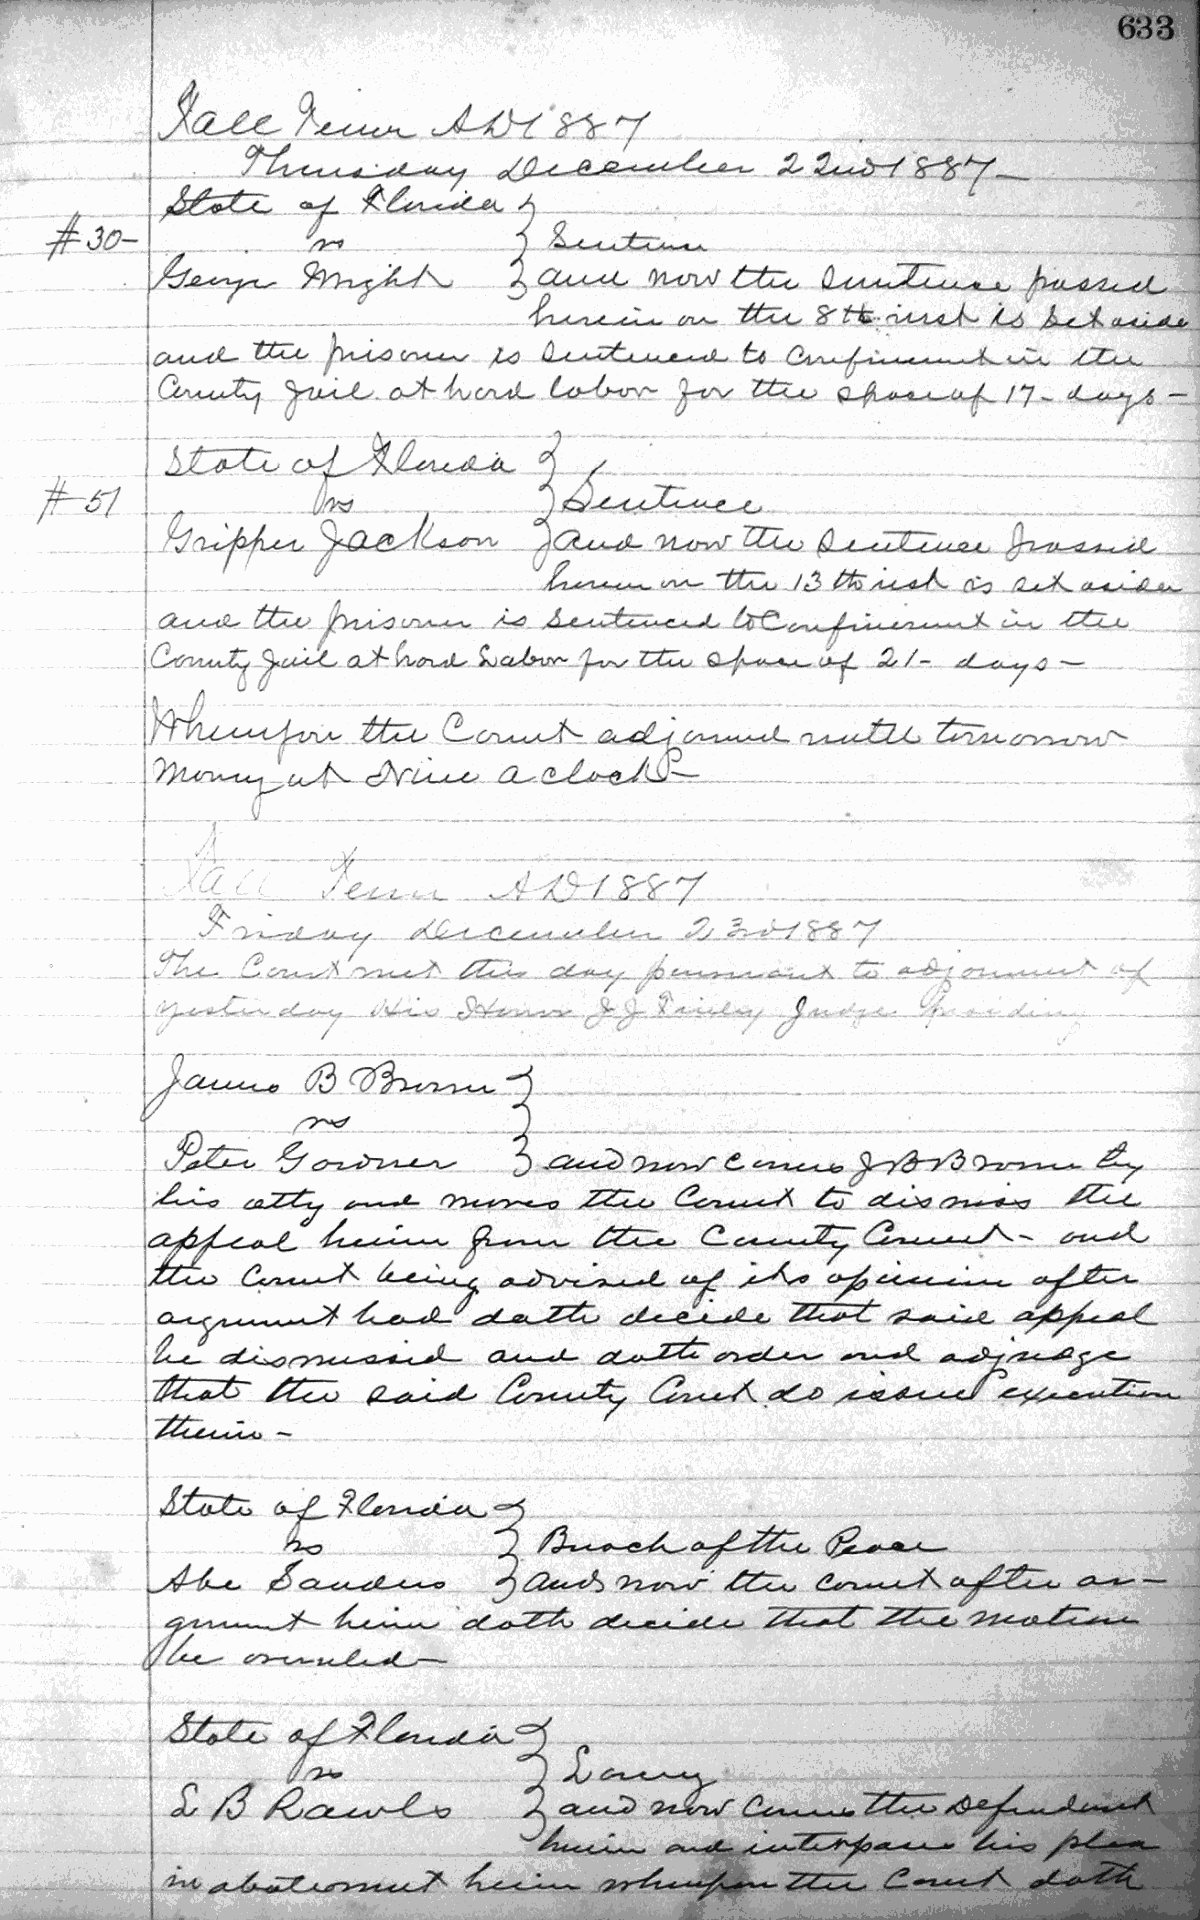 633
Fall Term AD 1887
Thursday December 22nd 1887 -
State of Florida
#30- vs Sentence
George Wright and now the Sentence passed
herein on the 8th inst is set aside
and the prisoner is sentenced to confinement in the
County Jail at hard labor for the space of 17- days -
State of Florida
#51 vs Sentence
Gripper Jackson and now the Sentence passed
herein on the 13th inst is set aside
and the prisoner is sentenced to Confinement in the
County Jail at hard Labor for the space of 21- days -
Whereupon the Court adjourned until tomorrow
Morng at Nine a clock -
Fall Term AD 1887
Friday December 23rd 1887
The Court met this day pursuant to adjournment of
yesterday His Honor J J Finley Judge Presiding
James B Brown
vs
Peter Gowner and now comes J B Brown by
his atty and moves the Court to dismiss the
appeal herein from the County Court - and
the Court being advised of its opinion after
argument had doth decide that said appeal
be dismissed and doth order and adjudge
that the said County Court do issue execution
therein -
State of Florida
vs Breach of the Peace
Abe Sanders and now the court after ar-
gument herein doth decide that the motion
be overruled -
State of Florida
vs Larceny
L B Rawls and now comes the Defendant
herein and interposes his plea
in abatement herein whereupon the Court doth